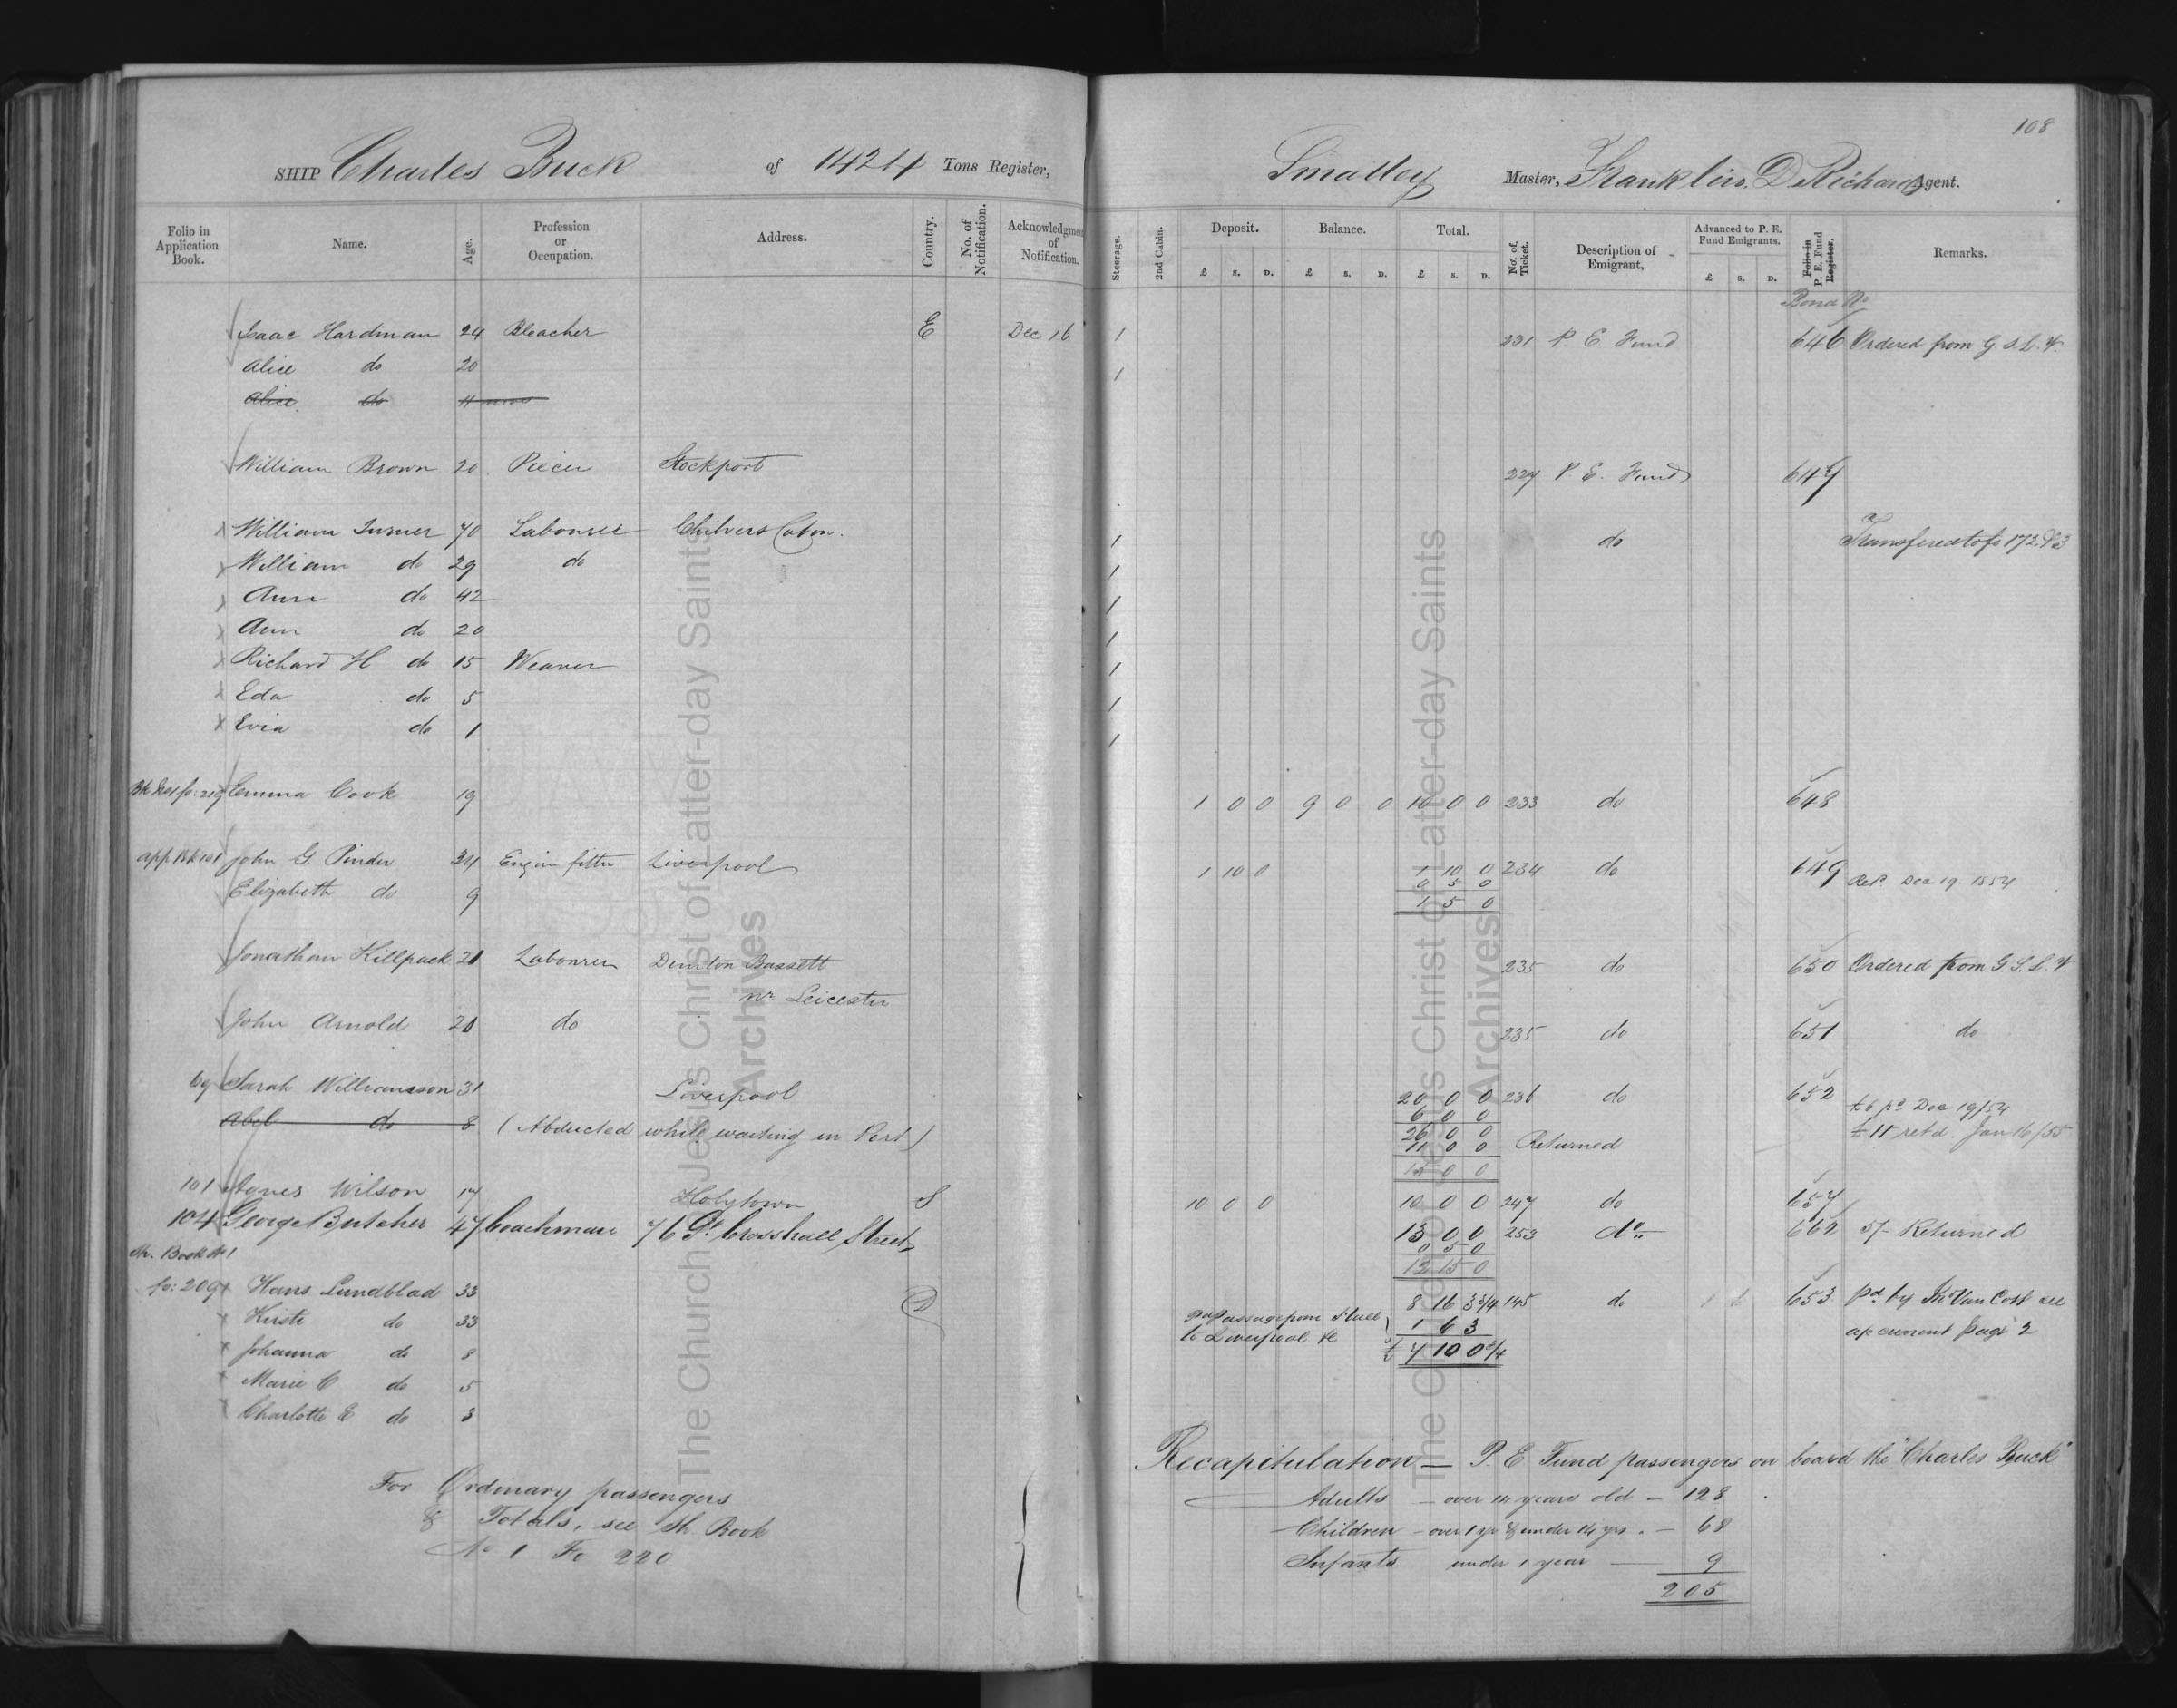 108
SHIP Charles Buck of 1424 Tons Register, Smalley Master, Franklin. D Richards Agent.
Folio in Application Book. Name. Age. Profession or Occupation. Address. Country. No. of Notification. Acknowledgment of Notification. Steerage. 2nd Cabin. Deposit. Balance. Total. No. of Ticket. Description of Emigrant, Advanced to P. E. Fund Emigrants. Folio in P. E. Fund Register. Remarks.
£ S. D. £ S. D. £ S. D. £ S. D.
Bond No
Isaac Hardman 24 Bleacher E Dec 16 1 231 P. E Fund 646 Ordered from G. S. L. V.
Alice do 20 1
Alice do 11
William Brown 20 Piecer Stockport 227 P. E. Fund 647
William Turner 70 Labourer Chilvers Coton. 1 do Transfered to fo 172
William do 29 do 1
Ann do 42 1
Ann do 20 1
Richard H do 15 Weaver 1
Eda do 5 1
Evia do 1 1
Bk No 1 fo: 219 Emma Cook 19 1 0 0 9 0 0 10 0 0 233 do 648
app. Bk 101 John G. Pinder 34 Engine fitter Liverpool 1 10 0 1 10 0 234 do 649
0 5 0
Elizabeth do 9 1 5 0 Dec 19. 1854
Jonathan Killpack 21 Labourer Dunton Bassett 235 do 650 Ordered from G. S. L. V.
nr. Leicester
John Arnold 21 do 235 do 651 do
69 Sarah Williamson 31 Liverpool 20 0 0 236 do 652 £6 pd Dec 19/54
6 0 0
Abel do 8 (Abducted while waiting in Port) 26 0 0 £11 retd. Jan 16/55
11 0 0 Returned
15 0 0
101 Agnes Wilson 17 Holytown S 10 0 0 10 0 0 247 do 657
104 George Butcher 47 Coachman 76 Gt. Crosshall Street 13 0 0 253 do 662 5/- Returned
0 5 0
12 15 0
Sh. Book No 1
fo: 209 Hans Lundblad 33 D 8 16 3 3/4 145 do 653 pd by Mr Van Cott see
Kirste do 33 pd Passage from Hull to Liverpool &c 1 6 3 account page 2
Johanna do 8 £ 7 10 0 3/4
Marie C do 5
Charlotte E do 3
For Ordinary passengers
& Totals, see Sh. Book
No 1 Fo 220
Recapitulation — P. E Fund passengers on board the "Charles Buck"
Adults — over 14 years old — 128
Children — over 1 yr & under 14 yrs. — 68
Infants under 1 year — 9
205
The Church of Jesus Christ of Latter-day Saints
Archives
The Church of Jesus Christ of Latter-day Saints
Archives